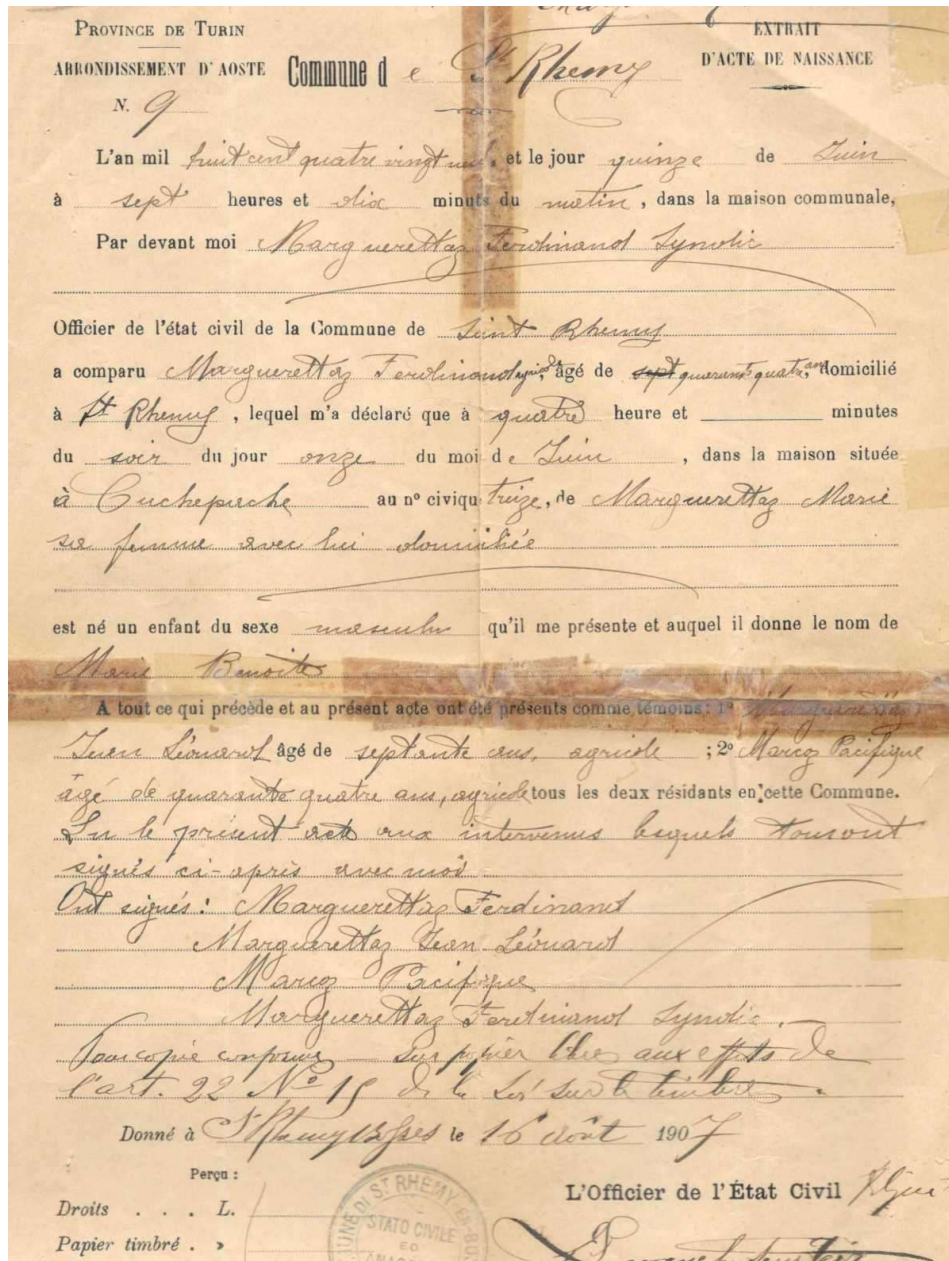 PROVINCE DE TURIN
EXTRAIT
ARRONDISSEMENT D'AOSTE Commune d e St Rhemy D'ACTE DE NAISSANCE
N. 9
L'an mil huit cent quatre vingt neuf et le jour quinze de Juin
à sept heures et dix minuts du matin, dans la maison communale,
Par devant moi Marguerettaz Ferdinand Syndic
Officier de l'état civil de la Commune de Saint Rhemy
a comparu Marguerettaz Ferdinand agricole, âgé de sept quarante quatre ans domicilié
à St Rhemy, lequel m'a déclaré que à quatre heure et minutes
du soir du jour onze du moi de Juin, dans la maison située
à Cuchepache au nº civiqu treize, de Marguerettaz Marie
sa femme avec lui domiciliée
est né un enfant du sexe masculin qu'il me présente et auquel il donne le nom de
Marie Benoite
A tout ce qui précède et au présent acte ont été présents comme témoins: 1º Marguerettaz
Jean Léonard âgé de septante ans, agricole ; 2º Marcoz Pacifique
âgé de quarante quatre ans, agricole tous les deux résidants en cette Commune.
Lu le présent acte aux intervenus lesquels tous ont
signés ci-après avec moi
Ont signés: Marguerettaz Ferdinand
Marguerettaz Jean Léonard
Marcoz Pacifique
Marguerettaz Ferdinand Syndic.
Pour copie conforme sur papier libre aux effets de
l'art. 22 Nº 15 de la loi sur le timbre.
Donné à St Rhemy Bosses le 16 août 1907
Perçu :
L'Officier de l'État Civil
Droits . . . L.
Papier timbré . »
COMUNE DI ST RHEMY EN BOSSES
STATO CIVILE
ED